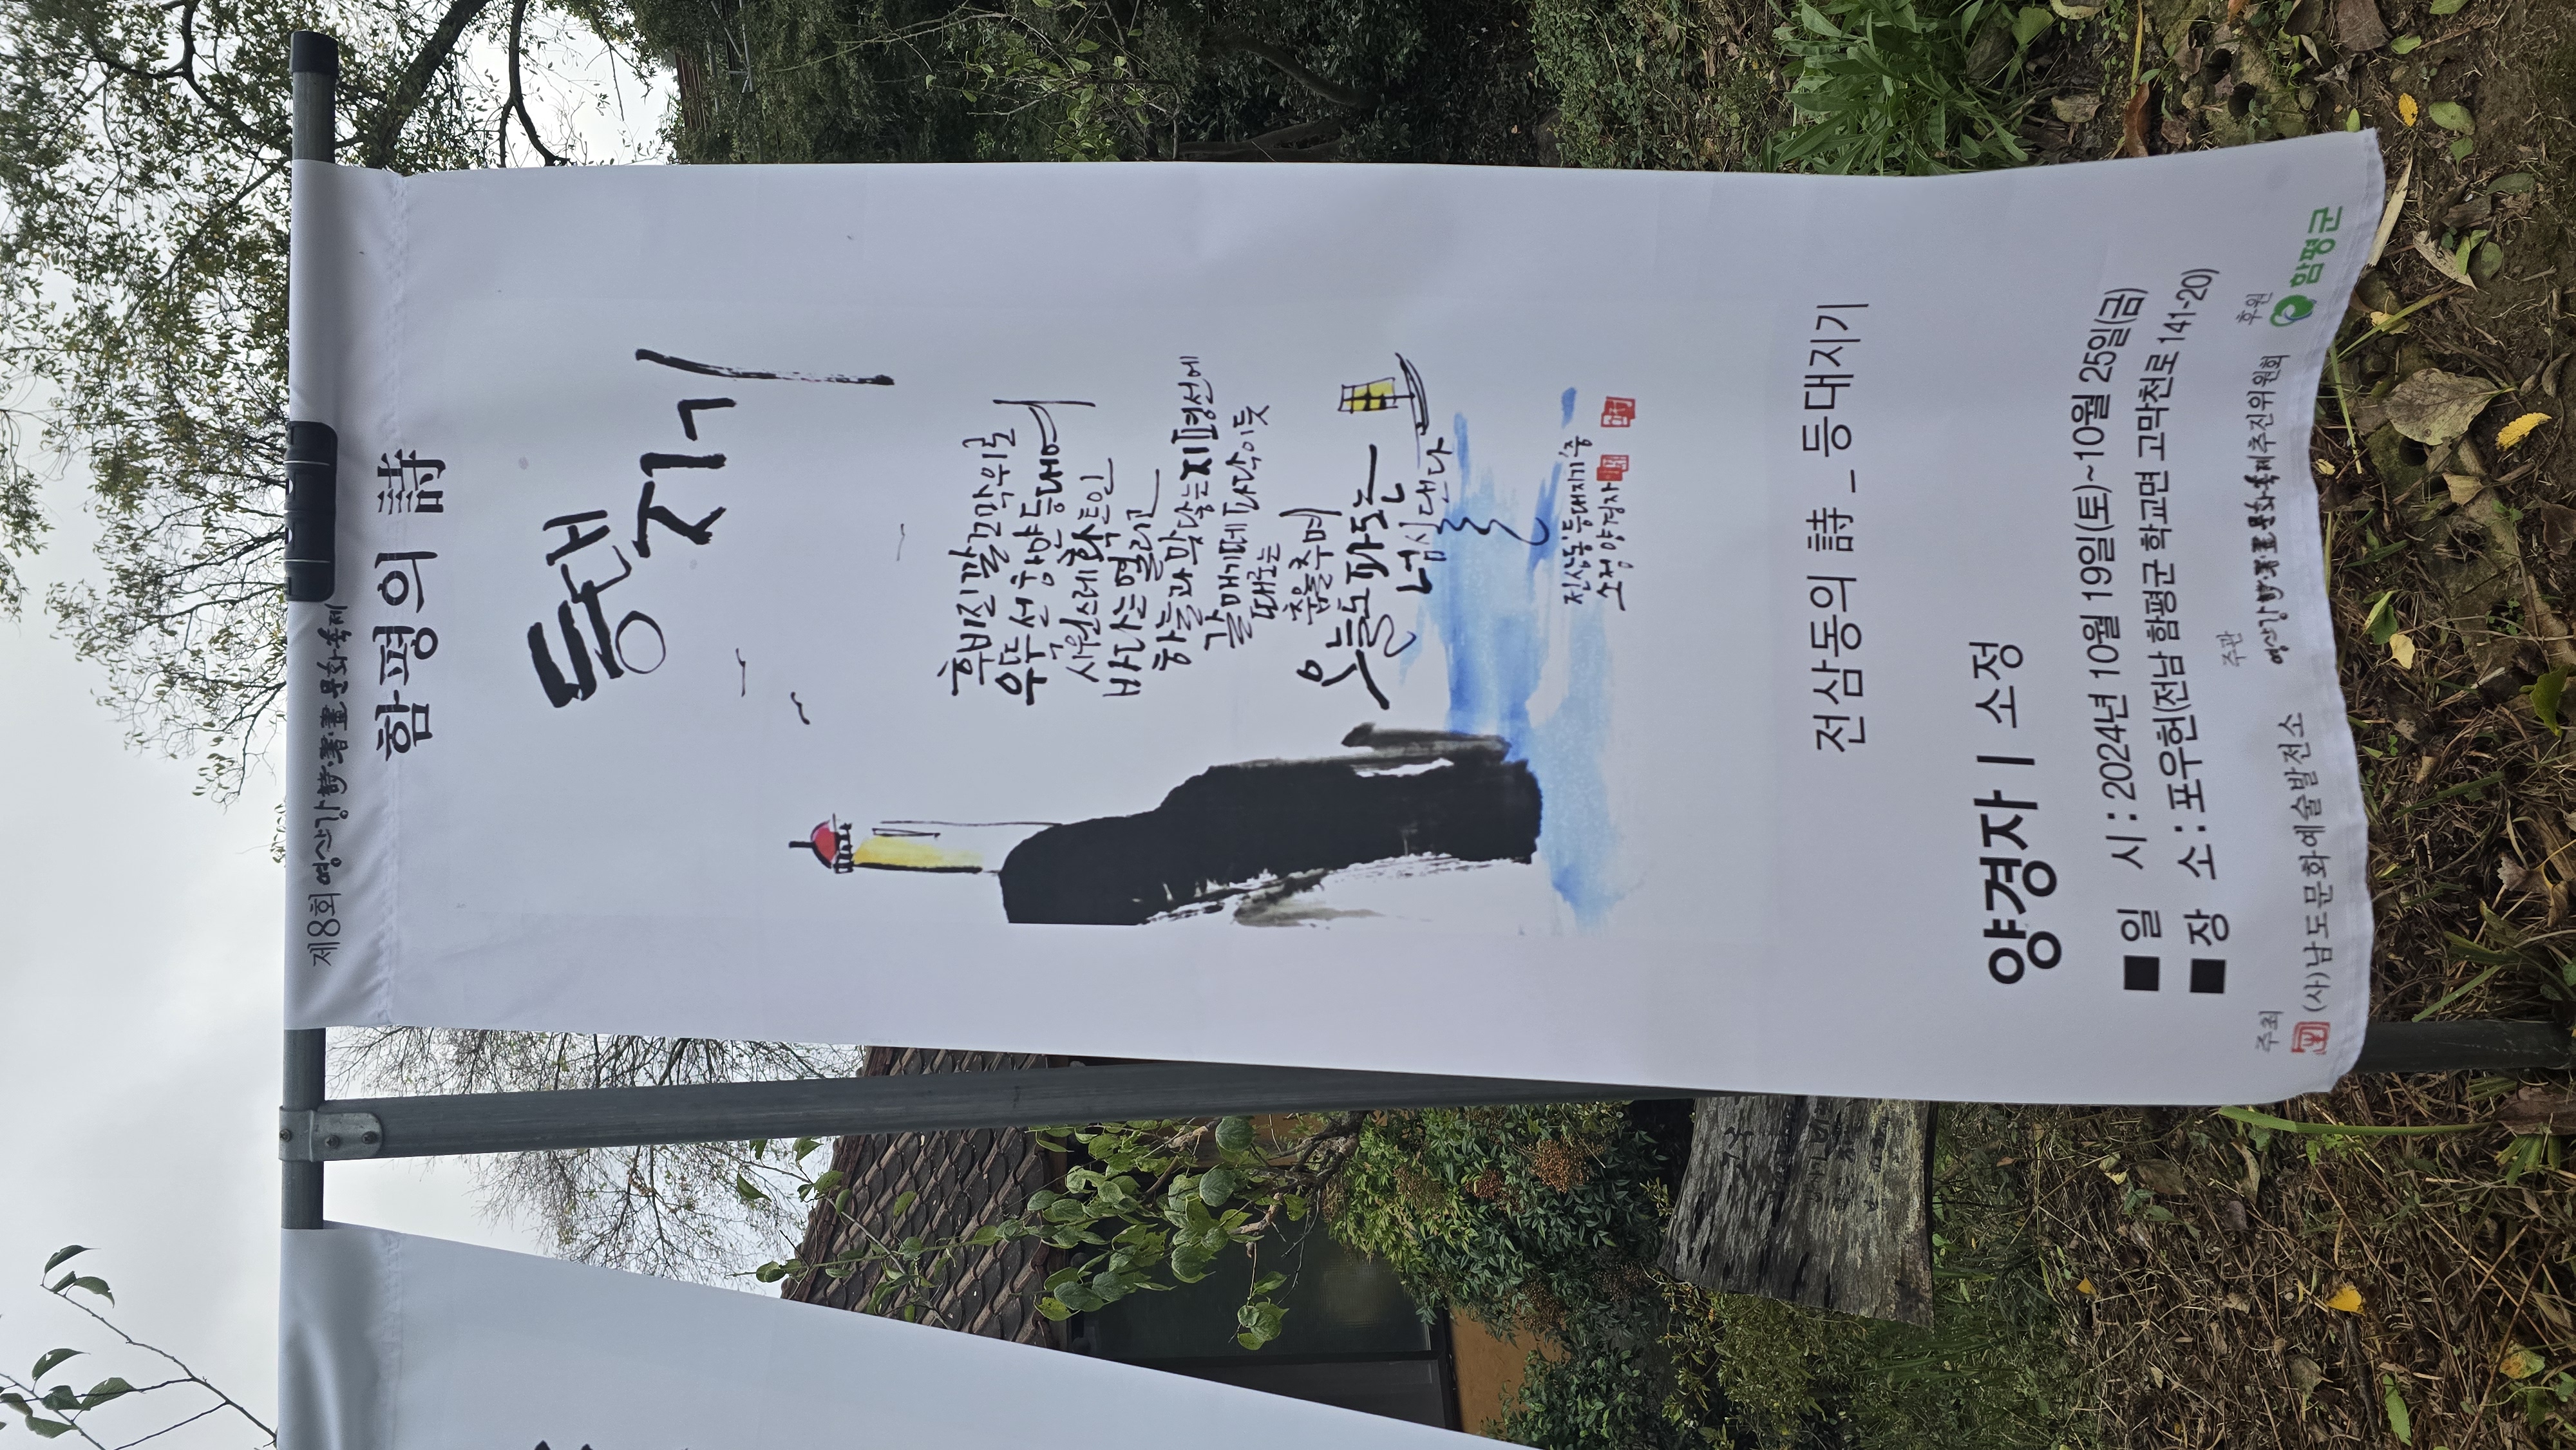 제8회 영산강 詩·書·畫 문화축제
함평의 詩
등대지기
후비진 깔끄막 위로
우뚜 선 하얀 등대에
시원스레 확 트인
바다는 열리고
하늘과 맞닿는 지평선에
갈매기떼 나닥이듯
때로는
춤을 추며
오늘도 파도는
넘실댄다
전삼동 '등대지기' 중
소정 양경자
전삼동의 詩 _ 등대지기
양경자 | 소정
■ 일 시 : 2024년 10월 19일(토)~10월 25일(금)
■ 장 소 : 포우헌(전남 함평군 학교면 고막천로 141-20)
주최 (사)남도문화예술발전소
주관 영산강 詩·書·畫 문화축제추진위원회
후원 함평군